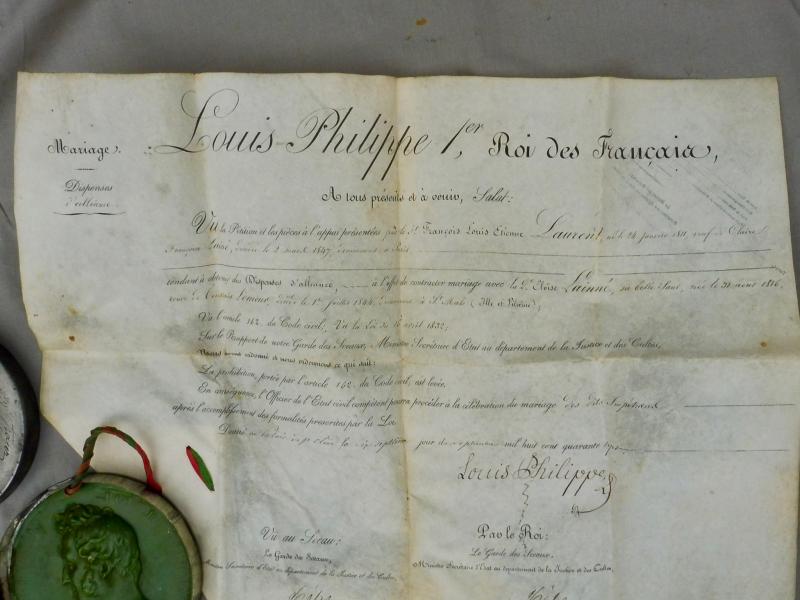 Mariage.
Dispenses
d'alliance.
Louis-Philippe 1er, Roi des Français,
A tous présents et à venir, Salut:
Vu la Pétition et les pièces à l'appui présentées par le Sr François Louis Etienne Laurent, né le 24 janvier 1811, veuf de Claire
Françoise Lainé, décédée le 2 mars 1847, demeurant à Paris
tendant à obtenir des Dispenses d'alliance, à l'effet de contracter mariage avec la De Eloïse Lainné, sa belle Sœur, née le 31 août 1816,
veuve de Lemieux, décédé le 1er juillet 1844, demeurant à St Malo (Ille et Vilaine);
Vu l'article 162 du Code civil; Vu la Loi du 16 avril 1832;
Sur le Rapport de notre Garde des Sceaux, Ministre Secrétaire d'Etat au département de la Justice et des Cultes,
Nous avons ordonné et nous ordonnons ce qui suit:
La prohibition, portée par l'article 162 du Code civil, est levée.
En conséquence, l'Officier de l'Etat civil compétent pourra procéder à la célébration du mariage des dits Impétrants
après l'accomplissement des formalités prescrites par la Loi
Donné au palais de St Cloud le jour de septembre mil huit cent quarante sept
Louis Philippe
Vu au Sceau:
Le Garde des Sceaux,
Ministre Secrétaire d'Etat au département de la Justice et des Cultes,
Par le Roi:
Le Garde des Sceaux,
Ministre Secrétaire d'Etat au département de la Justice et des Cultes,